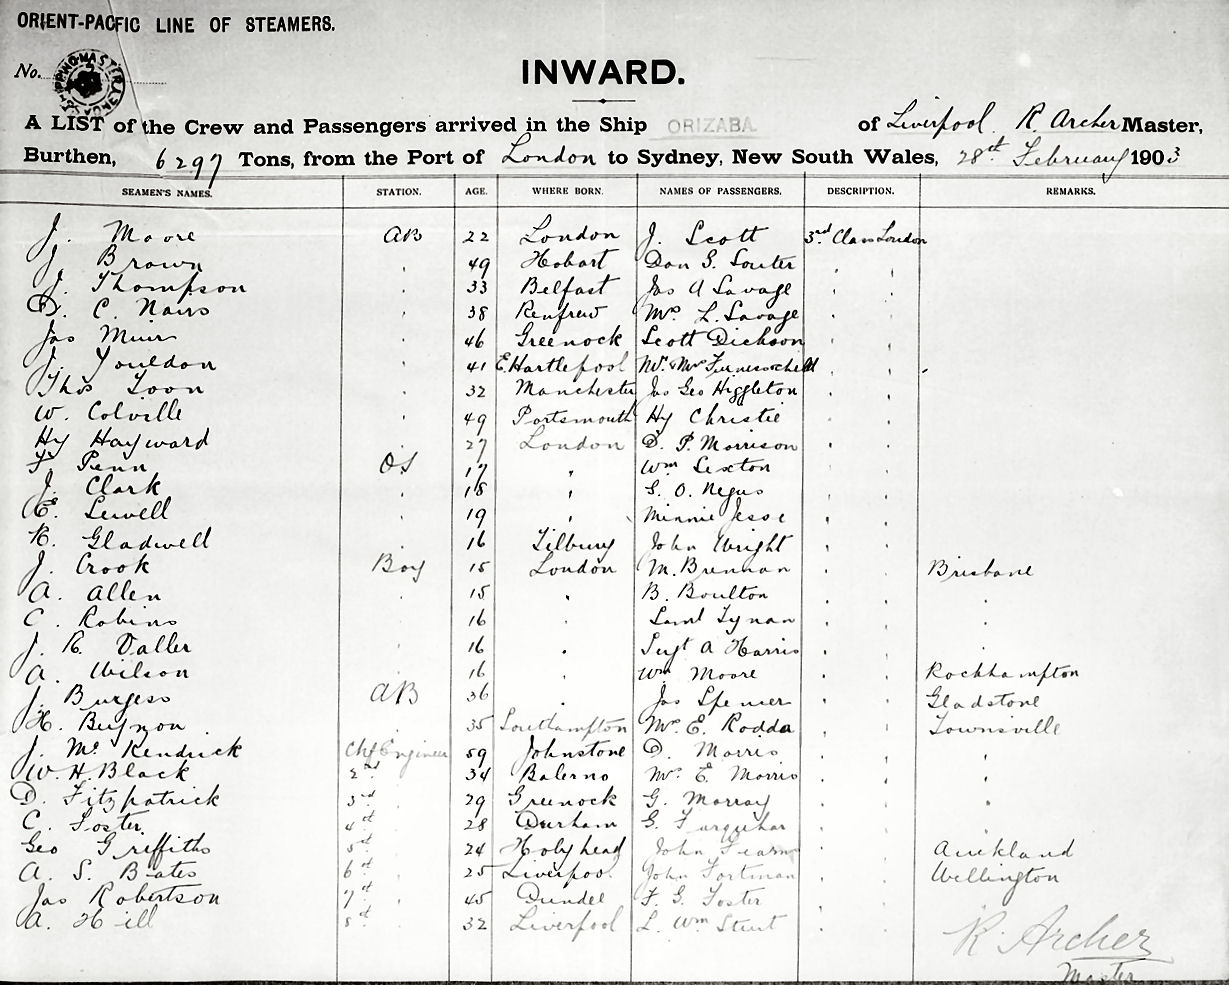 ORIENT-PACIFIC LINE OF STEAMERS.
No.
INWARD.
A LIST of the Crew and Passengers arrived in the Ship ORIZABA of Liverpool, R. Archer Master,
Burthen, 6297 Tons, from the Port of London to Sydney, New South Wales, 28th February 1903
SEAMEN'S NAMES. STATION. AGE. WHERE BORN. NAMES OF PASSENGERS. DESCRIPTION. REMARKS.
J. Moore AB 22 London J. Scott 3rd Class London
J. Brown " 49 Hobart Dan S. Souter " "
J. Thompson " 33 Belfast Jas A Savage " "
D. C. Nairs " 38 Renfrew Mrs L. Savage " "
Jas Muir " 46 Greenock Scott Dickson " "
J. Youldon " 41 E. Hartlepool Mr & Mrs " "
Thos Toon " 32 Manchester Jas Geo Higgleton " "
W. Colville " 49 Portsmouth Hy Christie " "
Hy Hayward " 27 London D. P. Morrison " "
F. Penn OS 17 " Wm Sexton " "
J. Clark " 18 " S. O. Negus " "
E. Sewell " 19 " Minnie Jesse " "
R. Gladwell " 16 Tilbury John Wright " "
J. Crook Boy 15 London M. Brennan " " Brisbane
A. Allen " 15 " B. Boulton " " "
C. Robins " 16 " Saml Tynan " " "
J. R. Valler " 16 " Sergt A Harris " " "
A. Wilson " 16 " Wm Moore " " Rockhampton
J. Burgess AB 36 " Jas Spencer " " Gladstone
H. Buynon " 35 Southampton Mrs E. Rodda " " Townsville
J. McKendrick Chf Engineer 59 Johnstone D. Morris " " "
W. H. Black 2nd " 34 Balerno Mrs E. Morris " " "
D. Fitzpatrick 3rd " 29 Greenock G. Murray " " "
C. Foster 4th " 28 Durham G. Farquhar " "
Geo Griffiths 5th " 24 Holyhead John Fearn " " Auckland
A. S. Bates 6th " 25 Liverpool John Fortman " " Wellington
Jas Robertson 7th " 45 Dundee F. G. Foster " "
A. Hill 8th " 32 Liverpool L. Wm Stent " "
R. Archer
Master